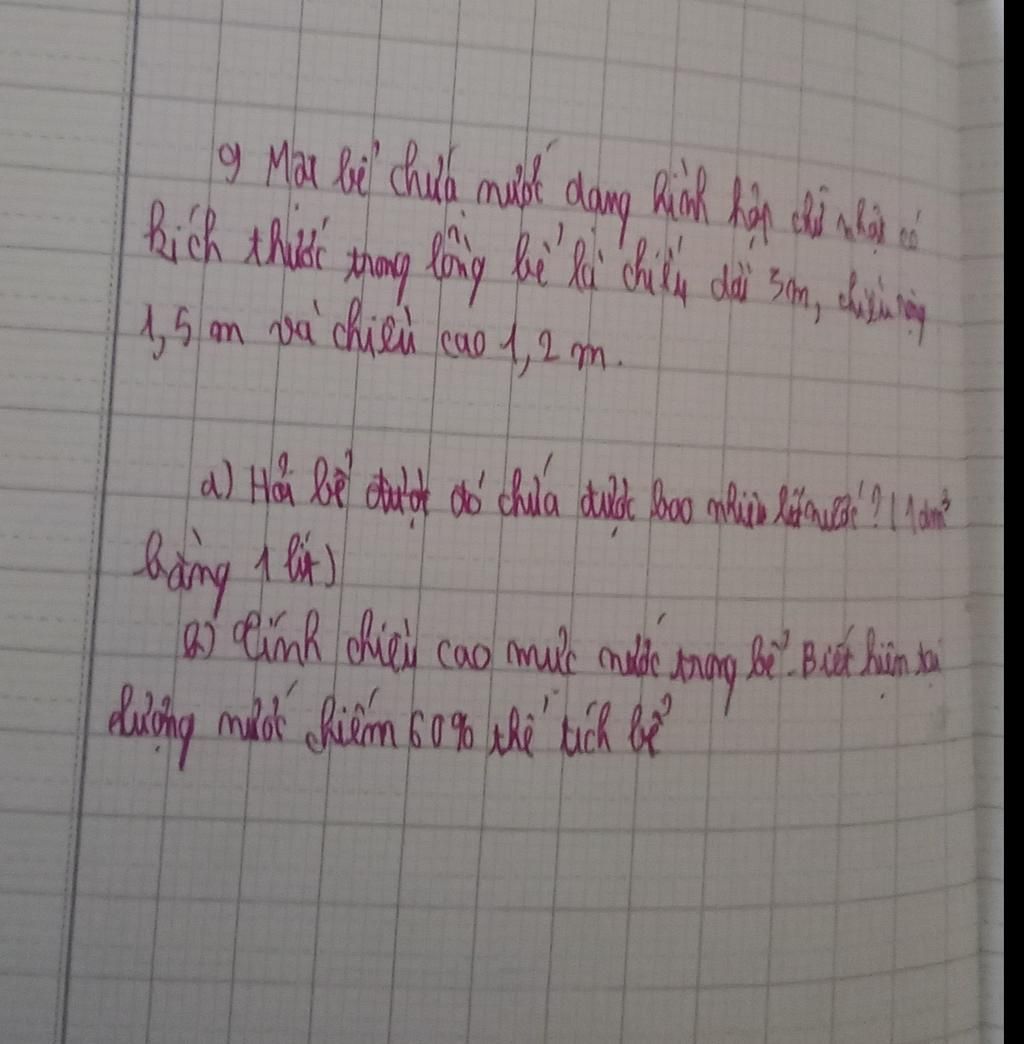 9 Một bể chứa nước dạng hình hộp chữ nhật có
kích thước trong lòng bể là chiều dài 3m, chiều rộng
1,5 m và chiều cao 1,2 m.
a) Hỏi bể được đó chứa được bao nhiêu lít nước? (1dm³
bằng 1 lít)
a) Tính chiều cao mực nước trong bể. Biết hiện tại
lượng nước chiếm 60% thể tích bể